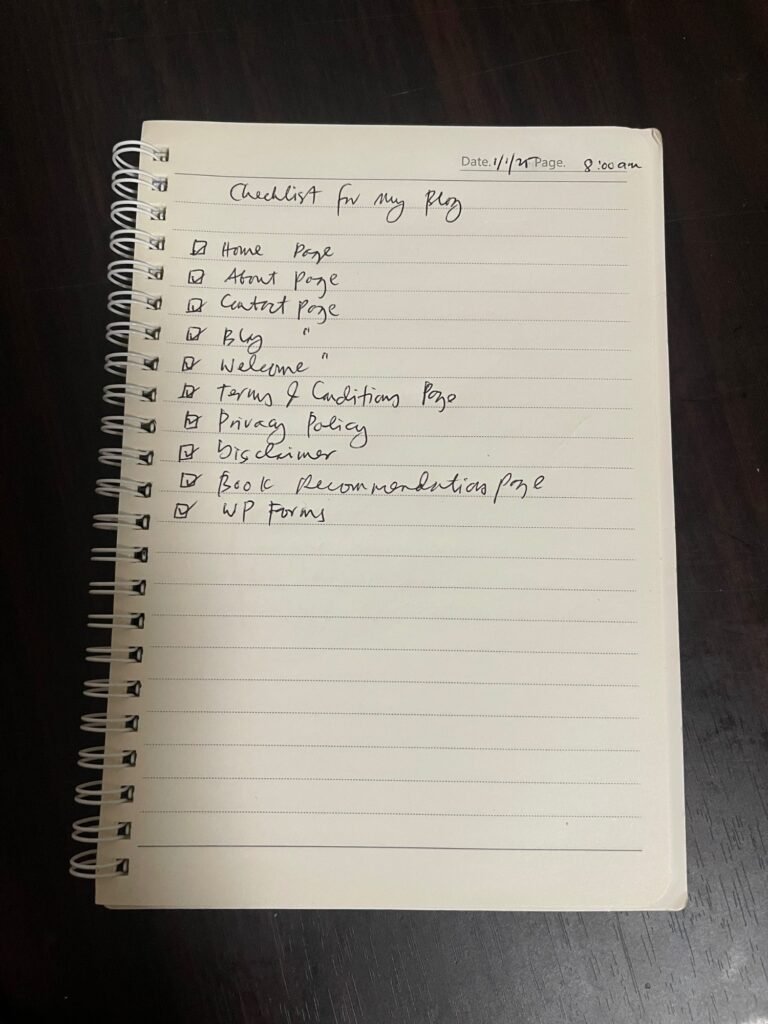 Date. 1/1/25 Page. 8:00 am
Checklist for My Blog
☑ Home Page
☑ About page
☑ Contact page
☑ Blog "
☑ Welcome "
☑ Terms & Conditions Page
☑ Privacy Policy
☑ Disclaimer
☑ Book Recommendations page
☑ WP Forms